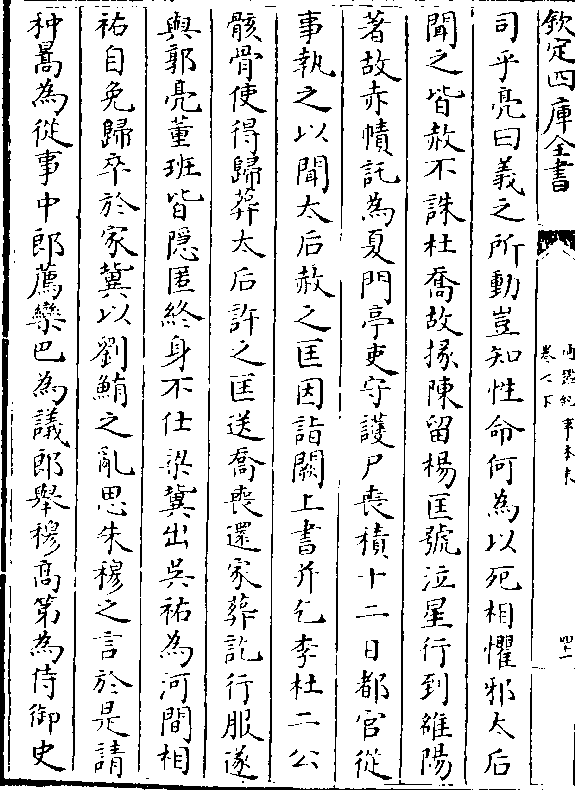 欽定四庫全書
卷七下
司乎亮曰義之所動豈知性命何為以死相懼邪太后
聞之皆赦不誅杜喬故掾陳留楊匡號泣星行到雒陽
著故赤幘託為夏門亭吏守護尸喪積十二日都官從
事執之以聞太后赦之匡因詣闕上書并乞李杜二公
骸骨使得歸葬太后許之匡送喬喪還家葬訖行服遂
與郭亮董班皆隱匿終身不仕梁冀出吳祐為河間相
祐自免歸卒於家冀以劉鮪之亂思朱穆之言於是請
种暠為從事中郎薦欒巴為議郎舉穆高第為侍御史